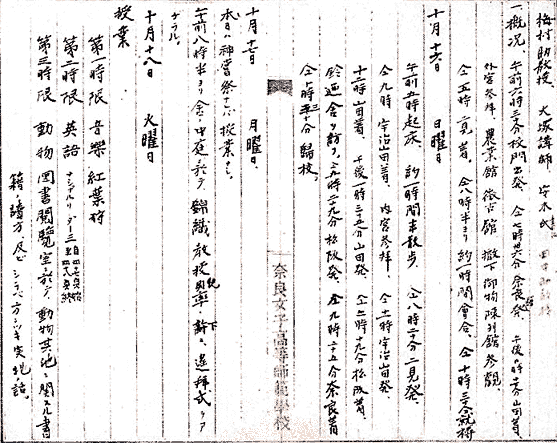 梅村助教授 大塚講師
一、概况 午前六時三分校門出発 仝七時 分奈良発 午後 時 分山田着
外宮参拝、農業館 徴古館 撤下御物陳列館参観、
仝五時二見着、仝八時半ヨリ約一時間会合、仝十時三 分就褥
十月十六日 日曜日
午前五時起床 約一時間半散歩、仝八時二十分二見発、
仝九時 宇治山田着、内宮参拝、仝十時宇治山田発
十一時 山田着、午後一時三十五分山田発 仝二時十九分松阪着、
鈴廼舎ヲ訪フ、仝九時二十九分松阪発、仝九時二十五分奈良着
仝十時三十分歸校、
奈良女子高等師範學校
十月十七日 月曜日、
本日ハ神嘗祭ナレバ授業ナシ、
午前八時半ヨリ舎ノ中庭ニ於テ錦織教授 率ノ許ニ遥拝式ヲア
ゲラル、
十月十八日 火曜日
授業、
第一時限 音樂 紅葉狩
第二時限 英語 ナショナルリーダー三
第三時限 動物 図書閲覧室ニ於テ、動物其他ニ関スル書
籍ノ讀方、及ビシラベ方ニツキ実地 話、